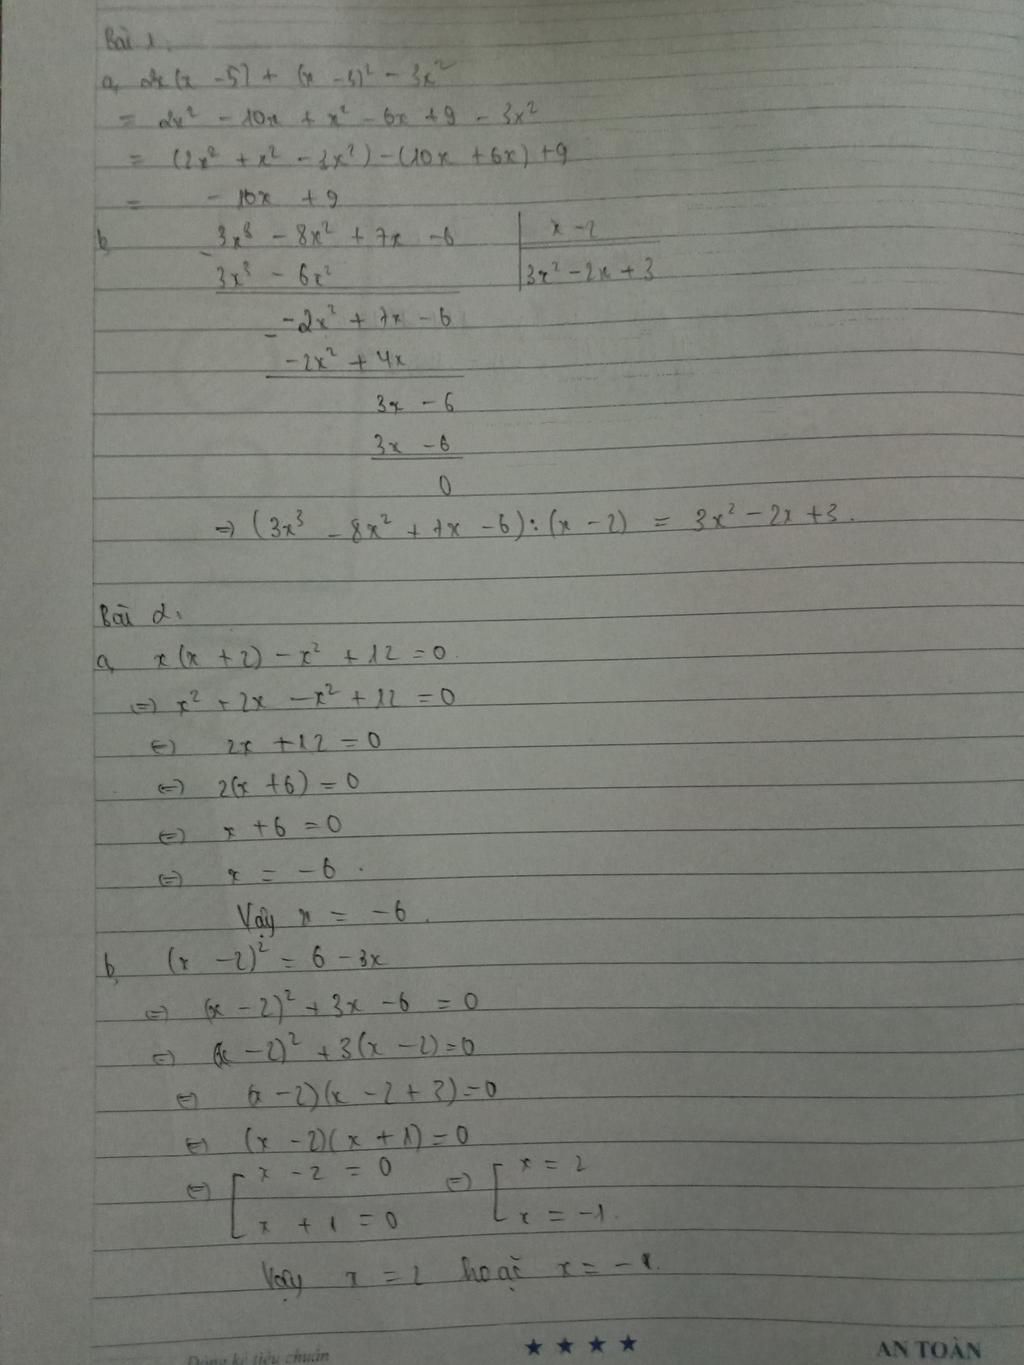 Bài 1:
a, 2x(x - 5) + (x - 3)² - 3x²
= 2x² - 10x + x² - 6x + 9 - 3x²
= (2x² + x² - 3x²) - (10x + 6x) + 9
= - 16x + 9
b, 3x³ - 8x² + 7x - 6 | x - 2
- 3x³ - 6x² | 3x² - 2x + 3
- -2x² + 7x - 6
-2x² + 4x
3x - 6
3x - 6
0
=> (3x³ - 8x² + 7x - 6) : (x - 2) = 3x² - 2x + 3.
Bài 2:
a, x(x + 2) - x² + 12 = 0.
<=> x² + 2x - x² + 12 = 0
<=> 2x + 12 = 0
<=> 2(x + 6) = 0
<=> x + 6 = 0
<=> x = -6.
Vậy x = -6.
b, (x - 2)² = 6 - 3x
<=> (x - 2)² + 3x - 6 = 0
<=> (x - 2)² + 3(x - 2) = 0
<=> (x - 2)(x - 2 + 3) = 0
<=> (x - 2)(x + 1) = 0
<=> [ x - 2 = 0 <=> [ x = 2
x + 1 = 0 x = -1.
Vậy x = 2 hoặc x = -1.
Dòng kẻ tiêu chuẩn ★ ★ ★ ★ AN TOÀN